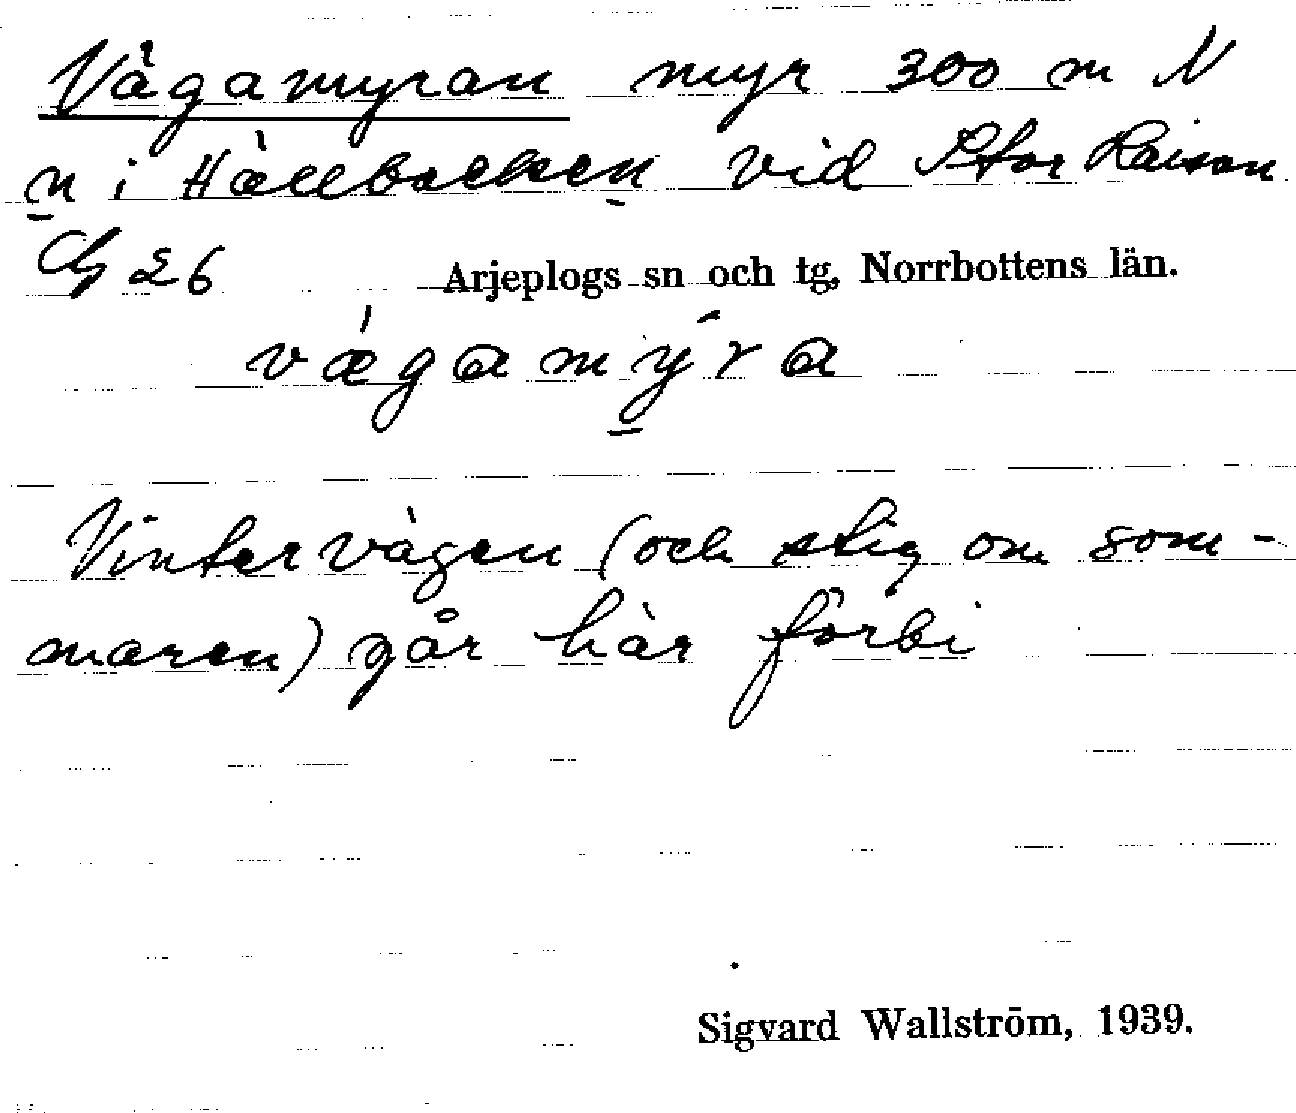 Vägamyran myr 300 m N
n i Hällbacken vid Stor Laisan
Cg 26 Arjeplogs sn och tg, Norrbottens län.
vægamyra
Vintervägen (och stig om som-
maren) går här förbi
Sigvard Wallström, 1939.